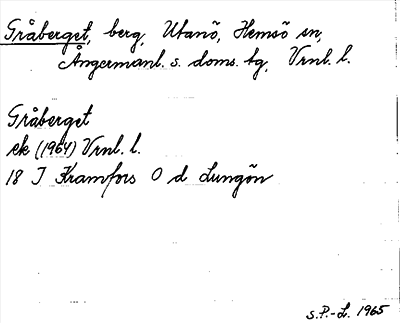 Gråberget, berg, Utanö, Hemsö sn,
Ångermanl. s. doms. tg, Vrnl. l.
Gråberget
ek (1964) Vrnl. l.
18 I Kramfors O d Lungön
s.P.-L. 1965